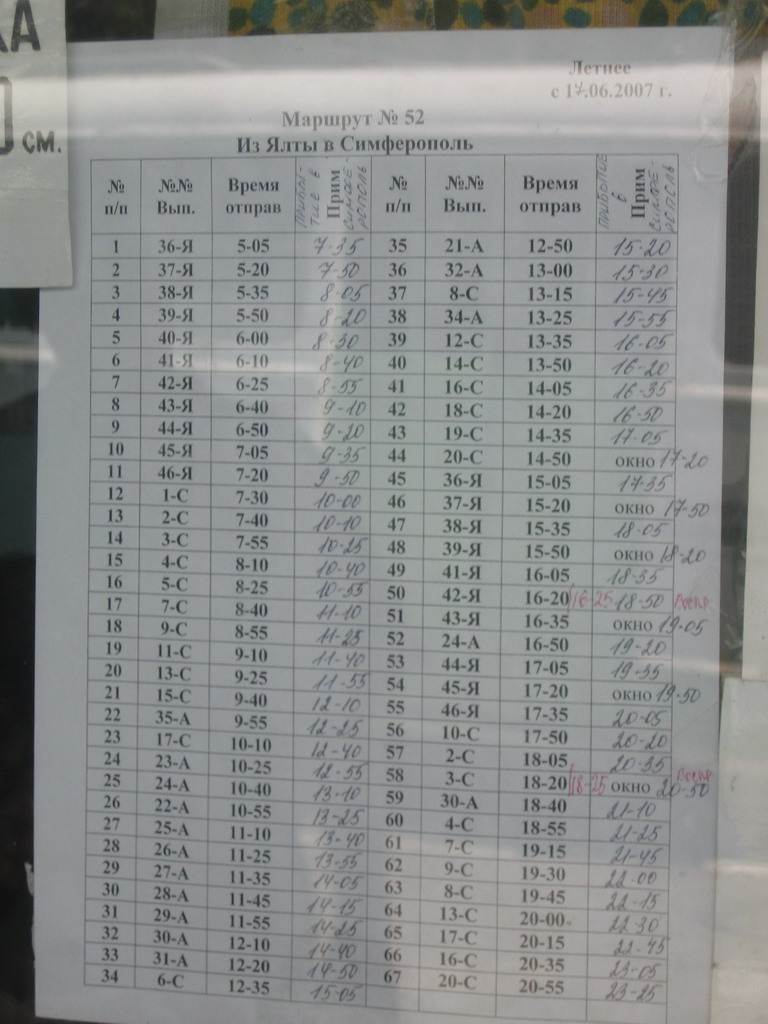 КА
0 см.
Летнее
с 14.06.2007 г.
Маршрут № 52
Из Ялты в Симферополь
№ п/п №№ Вып. Время отправ Прим прибытие в Симферополь № п/п №№ Вып. Время отправ Прим прибытие в Симферополь
1 36-Я 5-05 7-35 35 21-А 12-50 15-20
2 37-Я 5-20 7-50 36 32-А 13-00 15-30
3 38-Я 5-35 8-05 37 8-С 13-15 15-45
4 39-Я 5-50 8-20 38 34-А 13-25 15-55
5 40-Я 6-00 8-30 39 12-С 13-35 16-05
6 41-Я 6-10 8-40 40 14-С 13-50 16-20
7 42-Я 6-25 8-55 41 16-С 14-05 16-35
8 43-Я 6-40 9-10 42 18-С 14-20 16-50
9 44-Я 6-50 9-20 43 19-С 14-35 17-05
10 45-Я 7-05 9-35 44 20-С 14-50 окно 17-20
11 46-Я 7-20 9-50 45 36-Я 15-05 17-35
12 1-С 7-30 10-00 46 37-Я 15-20 окно 17-50
13 2-С 7-40 10-10 47 38-Я 15-35 18-05
14 3-С 7-55 10-25 48 39-Я 15-50 окно 18-20
15 4-С 8-10 10-40 49 41-Я 16-05 18-35
16 5-С 8-25 10-55 50 42-Я 16-20 /16-25 18-50
17 7-С 8-40 11-10 51 43-Я 16-35 окно 19-05
18 9-С 8-55 11-25 52 24-А 16-50 19-20
19 11-С 9-10 11-40 53 44-Я 17-05 19-35
20 13-С 9-25 11-55 54 45-Я 17-20 окно 19-50
21 15-С 9-40 12-10 55 46-Я 17-35 20-05
22 35-А 9-55 12-25 56 10-С 17-50 20-20
23 17-С 10-10 12-40 57 2-С 18-05 20-35
24 23-А 10-25 12-55 58 3-С 18-20 /18-25 окно 20-50
25 24-А 10-40 13-10 59 30-А 18-40 21-10
26 22-А 10-55 13-25 60 4-С 18-55 21-25
27 25-А 11-10 13-40 61 7-С 19-15 21-45
28 26-А 11-25 13-55 62 9-С 19-30 22-00
29 27-А 11-35 14-05 63 8-С 19-45 22-15
30 28-А 11-45 14-15 64 13-С 20-00 22-30
31 29-А 11-55 14-25 65 17-С 20-15 22-45
32 30-А 12-10 14-40 66 16-С 20-35 23-05
33 31-А 12-20 14-50 67 20-С 20-55 23-25
34 6-С 12-35 15-05